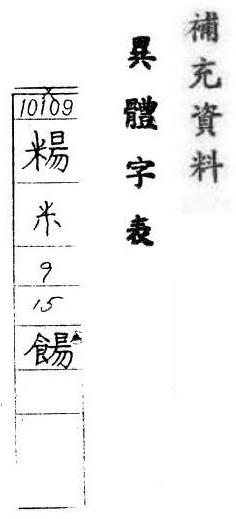 補充資料
異體字表
10109
米
9
15
餳